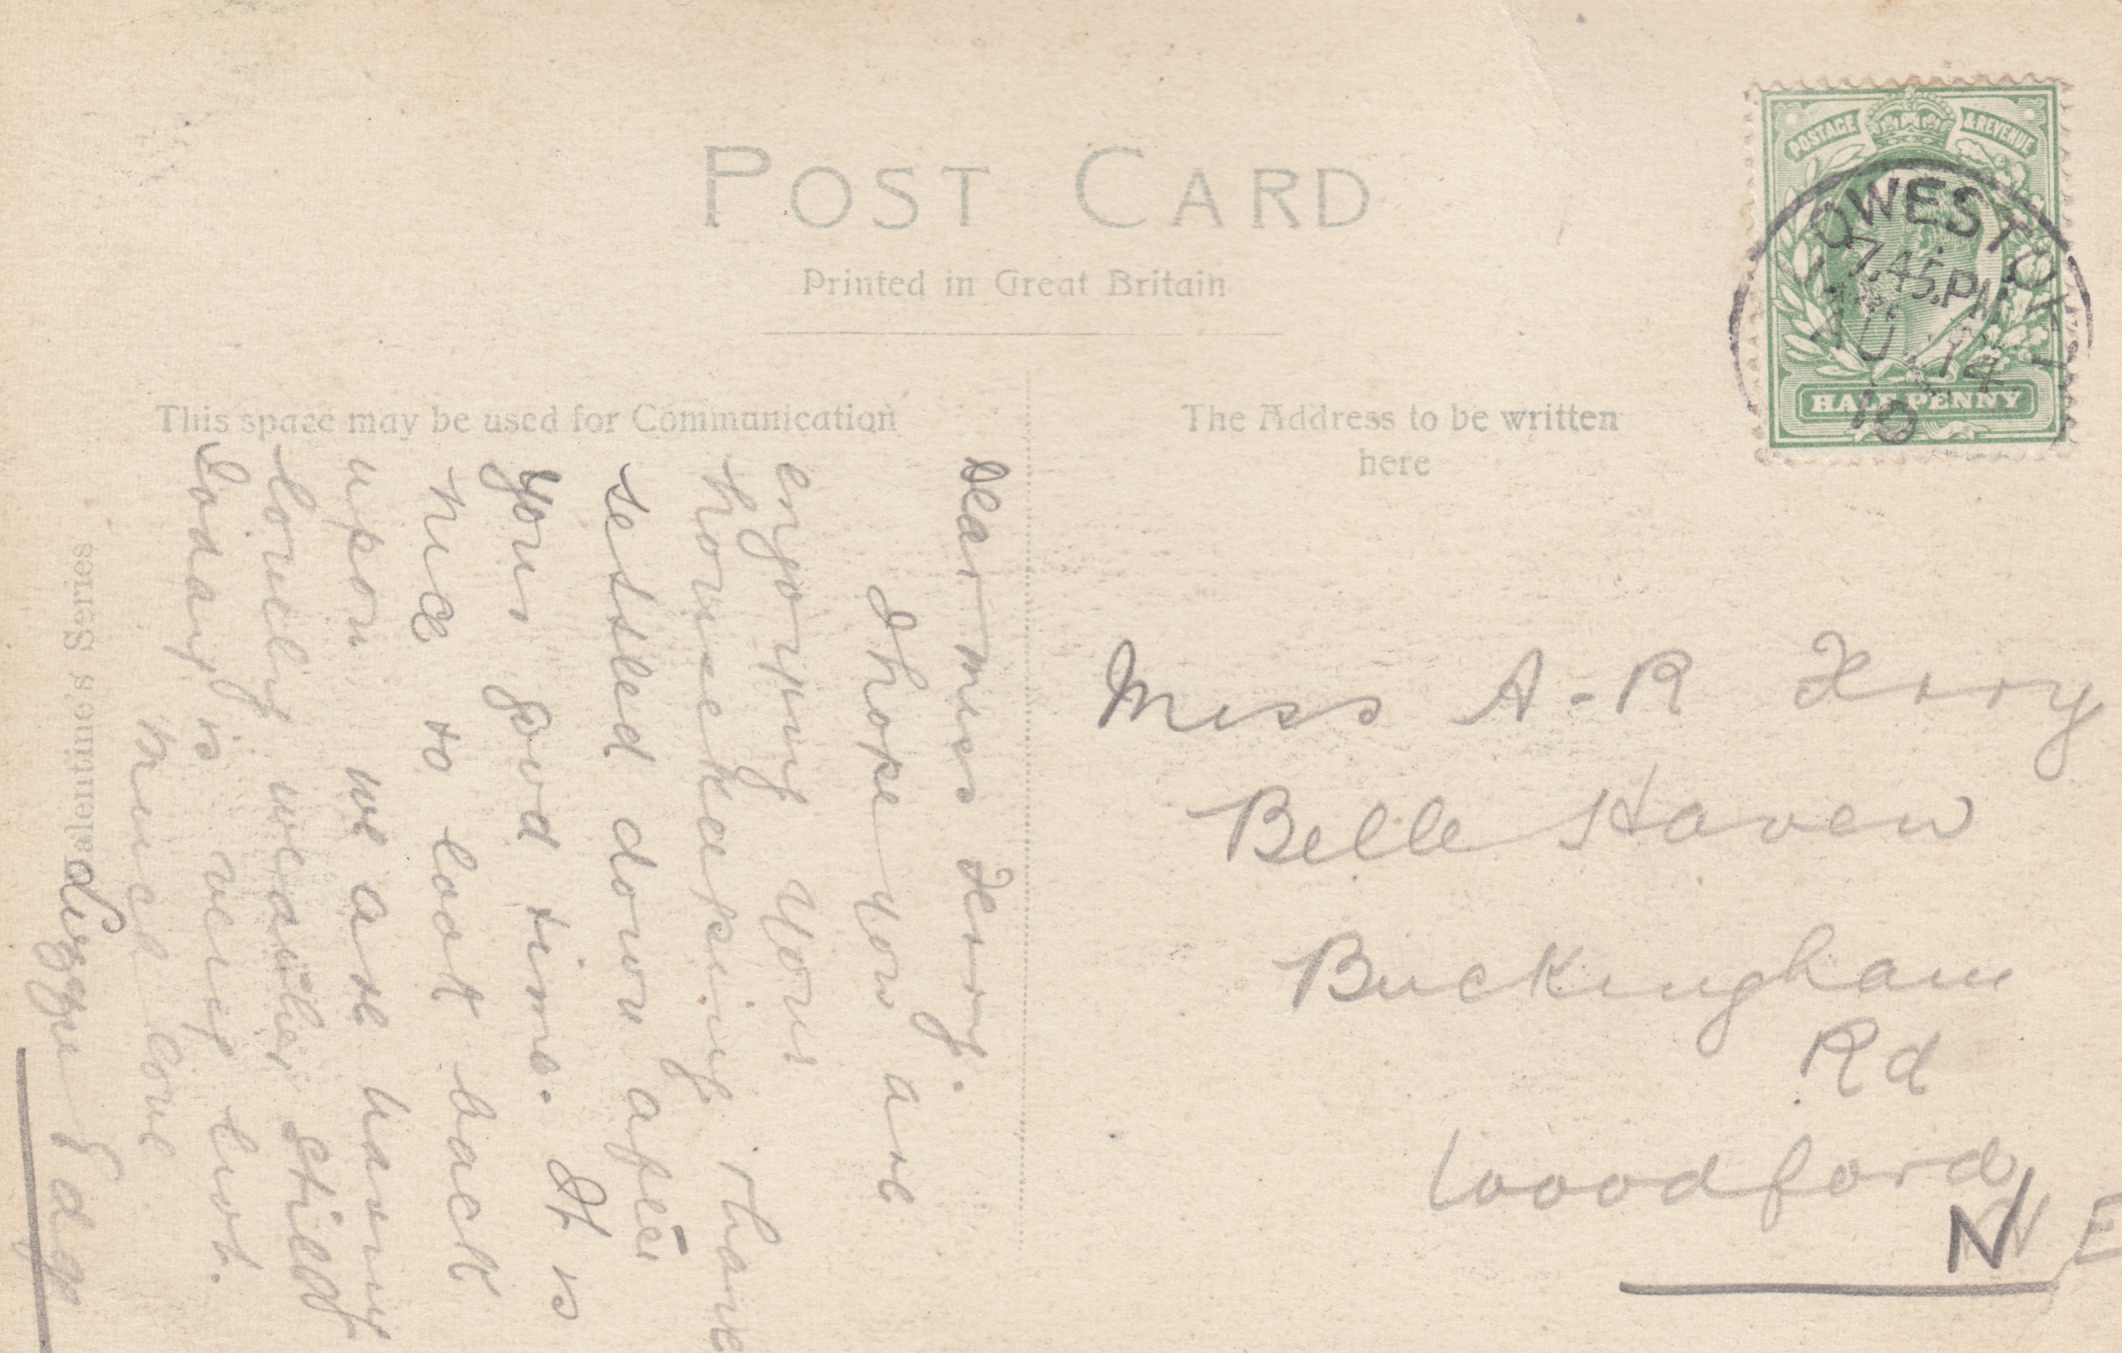 POST CARD
Printed in Great Britain
This space may be used for Communication
The Address to be written
here
POSTAGE
& REVENUE
HALF PENNY
LOWESTOFT
7.45.PM
AU 14
10
Dear Miss Terry.
I hope you are
enjoying your
housekeeping & have
settled down after
your good time. It is
nice to look back
upon we are having
lovely weather still
Today is very hot.
Much love
Lizzie
Miss A-R Terry
Belle Haven
Buckingham
Rd
Woodford
N E
Valentine's Series